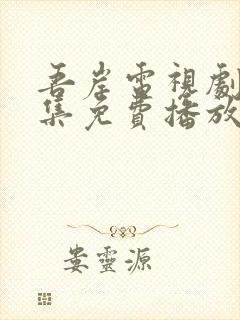 吾岸電視劇
集免費播放
婁靈源